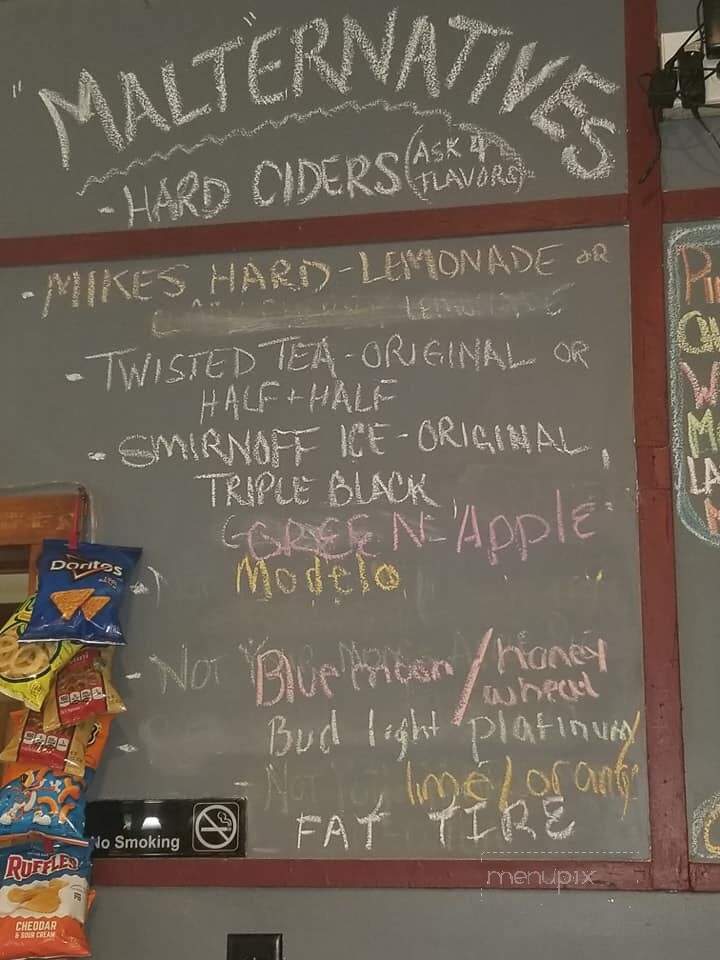 "MALTERNATIVES"
- HARD CIDERS (ASK 4 FLAVORS)
- MIKES HARD - LEMONADE OR
LEMONADE
- TWISTED TEA - ORIGINAL OR
HALF + HALF
- SMIRNOFF ICE - ORIGINAL,
TRIPLE BLACK,
GREEN Apple
Modelo
- Not Blue moon / honey wheat
Bud light platinum
- Not lime/orange
FAT TIRE
Doritos
No Smoking
RUFFLES
CHEDDAR
& SOUR CREAM
menupix